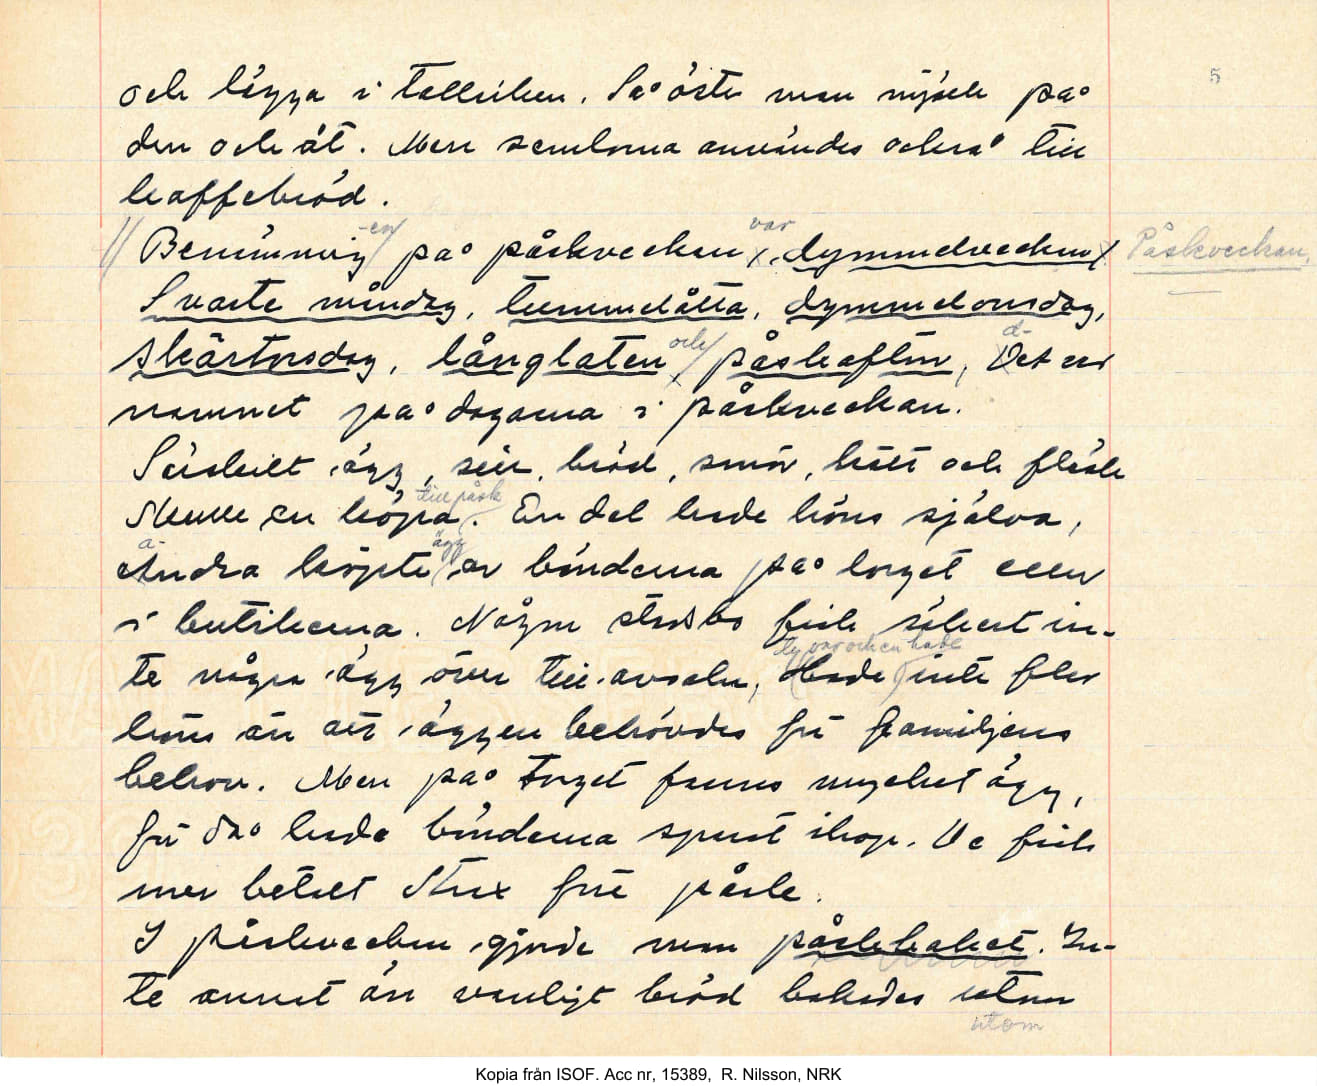 5
och lägga i talliken. Så öste man mjölk på
den och åt. Men semlorna användes också till
kaffebröd.
-en var
Benämning på påskveckan, dymmelveckan Påskveckan,
Svarte måndag, tummelåtta, dymmelonsdag,
och d-
skärtorsdag, långlaten påskafton, Det var
namnet på dagarna i påskveckan.
Särskilt ägg, sill, bröd, smör, kött och fläsk
till påsk
skulle en köpa. En del hade höns själva,
a- ägg
Andra köpte av bönderna på torget eller
i butikerna. Någon stadsbo fick säkert in-
ty var och en hade
te några ägg över till avsalu, Hade inte fler
höns än att äggen behövdes för familjens
behov. Men på torget fanns mycket ägg,
för då hade bönderna sparat ihop. De fick
mer betalt strax före påsk.
I påskveckan gjorde man påskbaket. In-
te annat än vanligt bröd bakades utan
utom
Kopia från ISOF. Acc nr, 15389, R. Nilsson, NRK